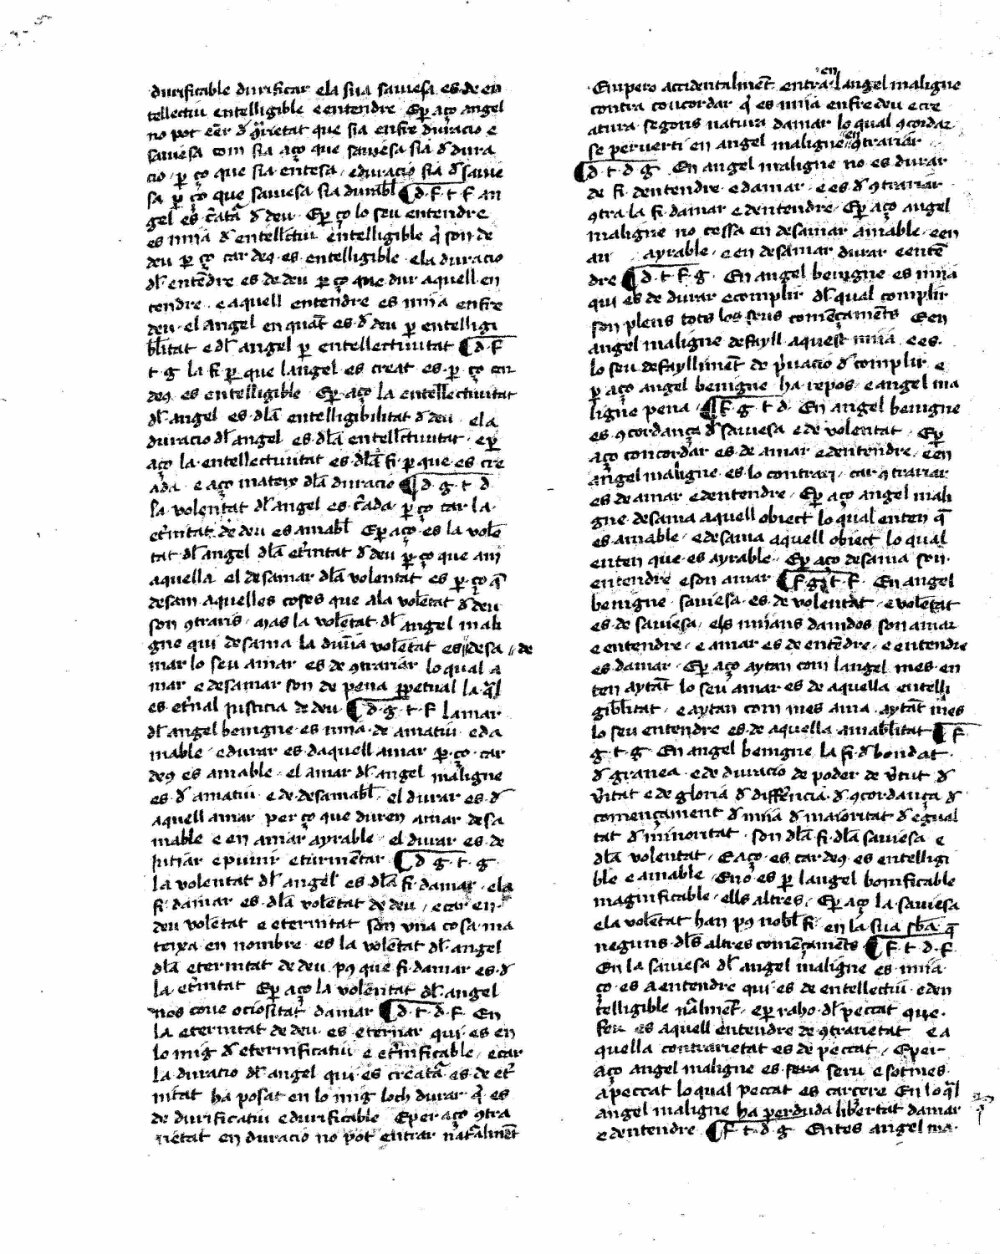 durificable durificar ela sua sauiesa es de en
tellectiu entelligible e entendre Eꝑ aço angel
no pot eēr đ ꝯͬrietat que sia enfre duracio e
sauiesa com sia aço que sauiesa sia đ dura
cio ꝑ ço que sia entesa e duracio sia đ sauie
sa ꝑ ço que sauiesa sia durabl̄ ¶ d · f · t · f an
gel es c̄ata đ deu · Eꝑ ço lo seu entendre
es mija đ entellectiu entelligible q̄ son de
deu ꝑ ço car deꝯ es entelligible ela duracio
dl̄ entēdre es de deu ꝑ ço que dur aquell en
tendre · e aquell entendre es mija enfre
deu · el angel en quāt es đ deu ꝑ entelligi
bl̄itat e dl̄ angel ꝑ entellectiuitat ¶ d · f
t · g la fi ꝑ que langel es creat es · ꝑ ço car
deꝯ es entelligible · Eꝑ aço la entell̄ectiuitat
dl̄ angel es dl̄a entelligibilitat đ deu · ela
duracio dl̄ angel es dl̄a entell̄ctiuitat · eꝑ
aço la · entellectiuitat es dl̄a fi · ꝑ que es cre
ada · e aço mateix dl̄a duracio ¶ d · g · t · d
la volentat dl̄ angel es c̄ada · ꝑ ço car la ·
et̄nitat de deu es amabl̄ Eꝑ aço es la volē
tat dl̄ angel dl̄a et̄nitat đ deu ꝑ ço que am
aquella el desamar dl̄a volentat es ꝑ ço q̄
desam aquelles coses que ala volētat đ deu
son ꝯtraris · Mas la volētat dl̄ angel mali
gne qui desama la diuīa volētat es desa de
mar lo seu amar es de ꝯtrariar lo qual a
mar e desamar son de pena ꝑpetual la q̄l
es et̄nal justicia de deu ¶ d · g · t · f lamar
dl̄ angel benigne es mija · de amatiu e da
mable · e durar es daquell amar ꝑ ço · car
deꝯ es amable · el amar dl̄ angel maligne
es · đ amatiu · e de desamabl̄ · el durar es · đ
aquell amar per ço que duren amar desa
mable e en amar ayrable · el durar es de
jutjar e punir e turmētar ¶ d · g · t · g
la volentat dl̄ angel es dl̄a fi · damar · ela
fi damar es dl̄a volētat de deu · e car en
deu volētat e eternitat son vna cosa ma
teixa en nombre · es la volētat dl̄ angel
dl̄a eternitat de deu pꝯ que fi · damar es · đ
la et̄nitat Eꝑ aço la volentat dl̄ angel
nos coue ociositat damar ¶ d · t · d · f · En
la eternitat de deu es eternar qui es en
lo mig đ eternificatiu e et̄nificable · e car
la duracio dl̄ angel qui es creata es de et̄
nitat ha posat en lo mig loch durar q̄ es
de durificatiu e durificable Eper aço ꝯtra
rietat en duracio no pot entrar nat̄almēt
Empero accidentalmēt entra en langel maligne
contra concordar q̄ es mija enfre deu e cre
atura segons natura damar lo qual ꝯcordar
se peruerti en angel maligne en ꝯtrariar
¶ d · t · d · g · En angel maligne no es durar
de fi dentendre e damar · e es đ ꝯtrariar
ꝯtra la fi damar e dentendre · Eꝑ aço angel
maligne no cessa en desamar amable · e en
am ayrable · e en desamar durar e entē
dre ¶ d · t · f · g · En angel benigne es mija
qui es de durar e complir dl̄ qual complir
son plens tots los seus comēçamēts E en
angel maligne defayll aquest mija e es
lo seu defaylliment de p̄uacio đ complir e
ꝑ aço angel benigne ha repos · e angel ma
ligne pena · ¶ f · g · t · d · En angel benigne
es ꝯcordança đ sauiesa e de volentat · Eꝑ
aço concordar es de amar e dentendre · e en
angel maligne es lo contrari · car ꝯtrariar
es de amar e dentendre · Eꝑ aço angel mali
gne desama aquell obiect lo qual enten q̄
es amable · e desama aquell obiect lo qual
enten que es ayrable · Eꝑ aço desama son
entendre e son amar ¶ f · g · t · f · En angel
benigne · sauiesa es de volentat · e volētat
es de sauiesa · els mijans damdos son amar
e entendre · e amar es de entēdre · e entendre
es damar · Eꝑ aço aytan com langel mes en
ten aytāt lo seu amar es de aquella entelli
gibl̄itat · e aytan com mes ama aytāt mes
lo seu entendre es de aquella amabl̄itat ¶ f
g · t · g · En angel benigne la fi · đ bondat ·
đ granea · e de duracio de poder de v̄tut đ
v̄itat e de gloria đ diff̄encia · đ ꝯcordança đ
començament đ mija đ maioritat đ egual
tat đ minoritat · son dl̄a fi · dl̄a sauiesa e
dl̄a volentat · E aço es car deꝯ es entelligi
ble e amable · E no es ꝑ langel bonificable
magnificable · ells altres · Eꝑ aço la sauiesa
ela volētat han pꝯ nobl̄ fi · en la sua sb̄a q̄
neguns dl̄s altres comēçamēts ¶ f · t · d · f
En la sauiesa dl̄ angel maligne es mija
ço es a entendre qui es de entellectiu e den
telligible n̄alment · eper raho dl̄ peccat que
feu es aquell entendre de ꝯtrarietat e a
quella contrarietat es de peccat · Eper
aço angel maligne es fera seru e sotmes
a peccat lo qual peccat es carçere En lo q̄l
angel maligne ha perduda libertat damar
e dentendre ¶ f · t · d · g · Entes angel ma·